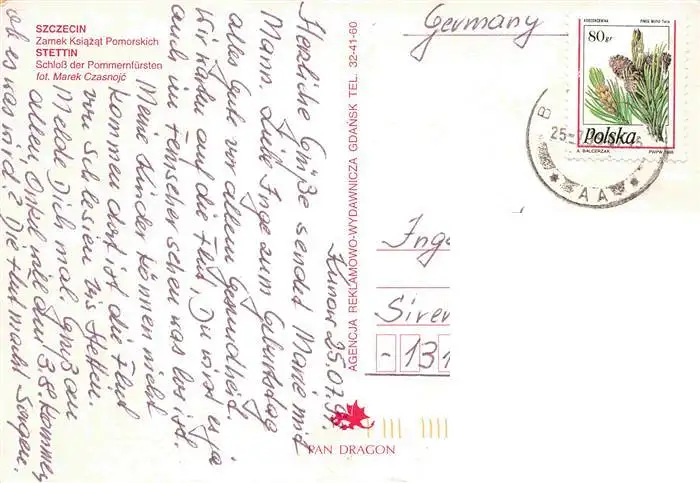 SZCZECIN
Zamek Książąt Pomorskich
STETTIN
Schloß der Pommernfürsten
fot. Marek Czasnojć
Kunow 25.07.97.
Herzliche Grüße sendet Marie mit
Mann. Liebe Inge zum Geburtstag
alles Gute vor allem Gesundheit.
Wir haben auf die Flut, Du wirst es ja
auch im Fernseher sehen was los ist.
Meine Kinder können nicht
kommen dort ist die Flut
von Schlesien bis Stettin.
Melde Dich mal. Grüß an
allen, Onkel will am 3.8. kommen,
ob es was wird? Die Flut macht Sorgen.
AGENCJA REKLAMOWO-WYDAWNICZA GDAŃSK TEL. 32-41-60
PAN DRAGON
Germany
KOSODRZEWINA
80 gr
Polska
A. BALCERZAK
PWPW 1995
25-7
B
AA
Inge
Sire
-131